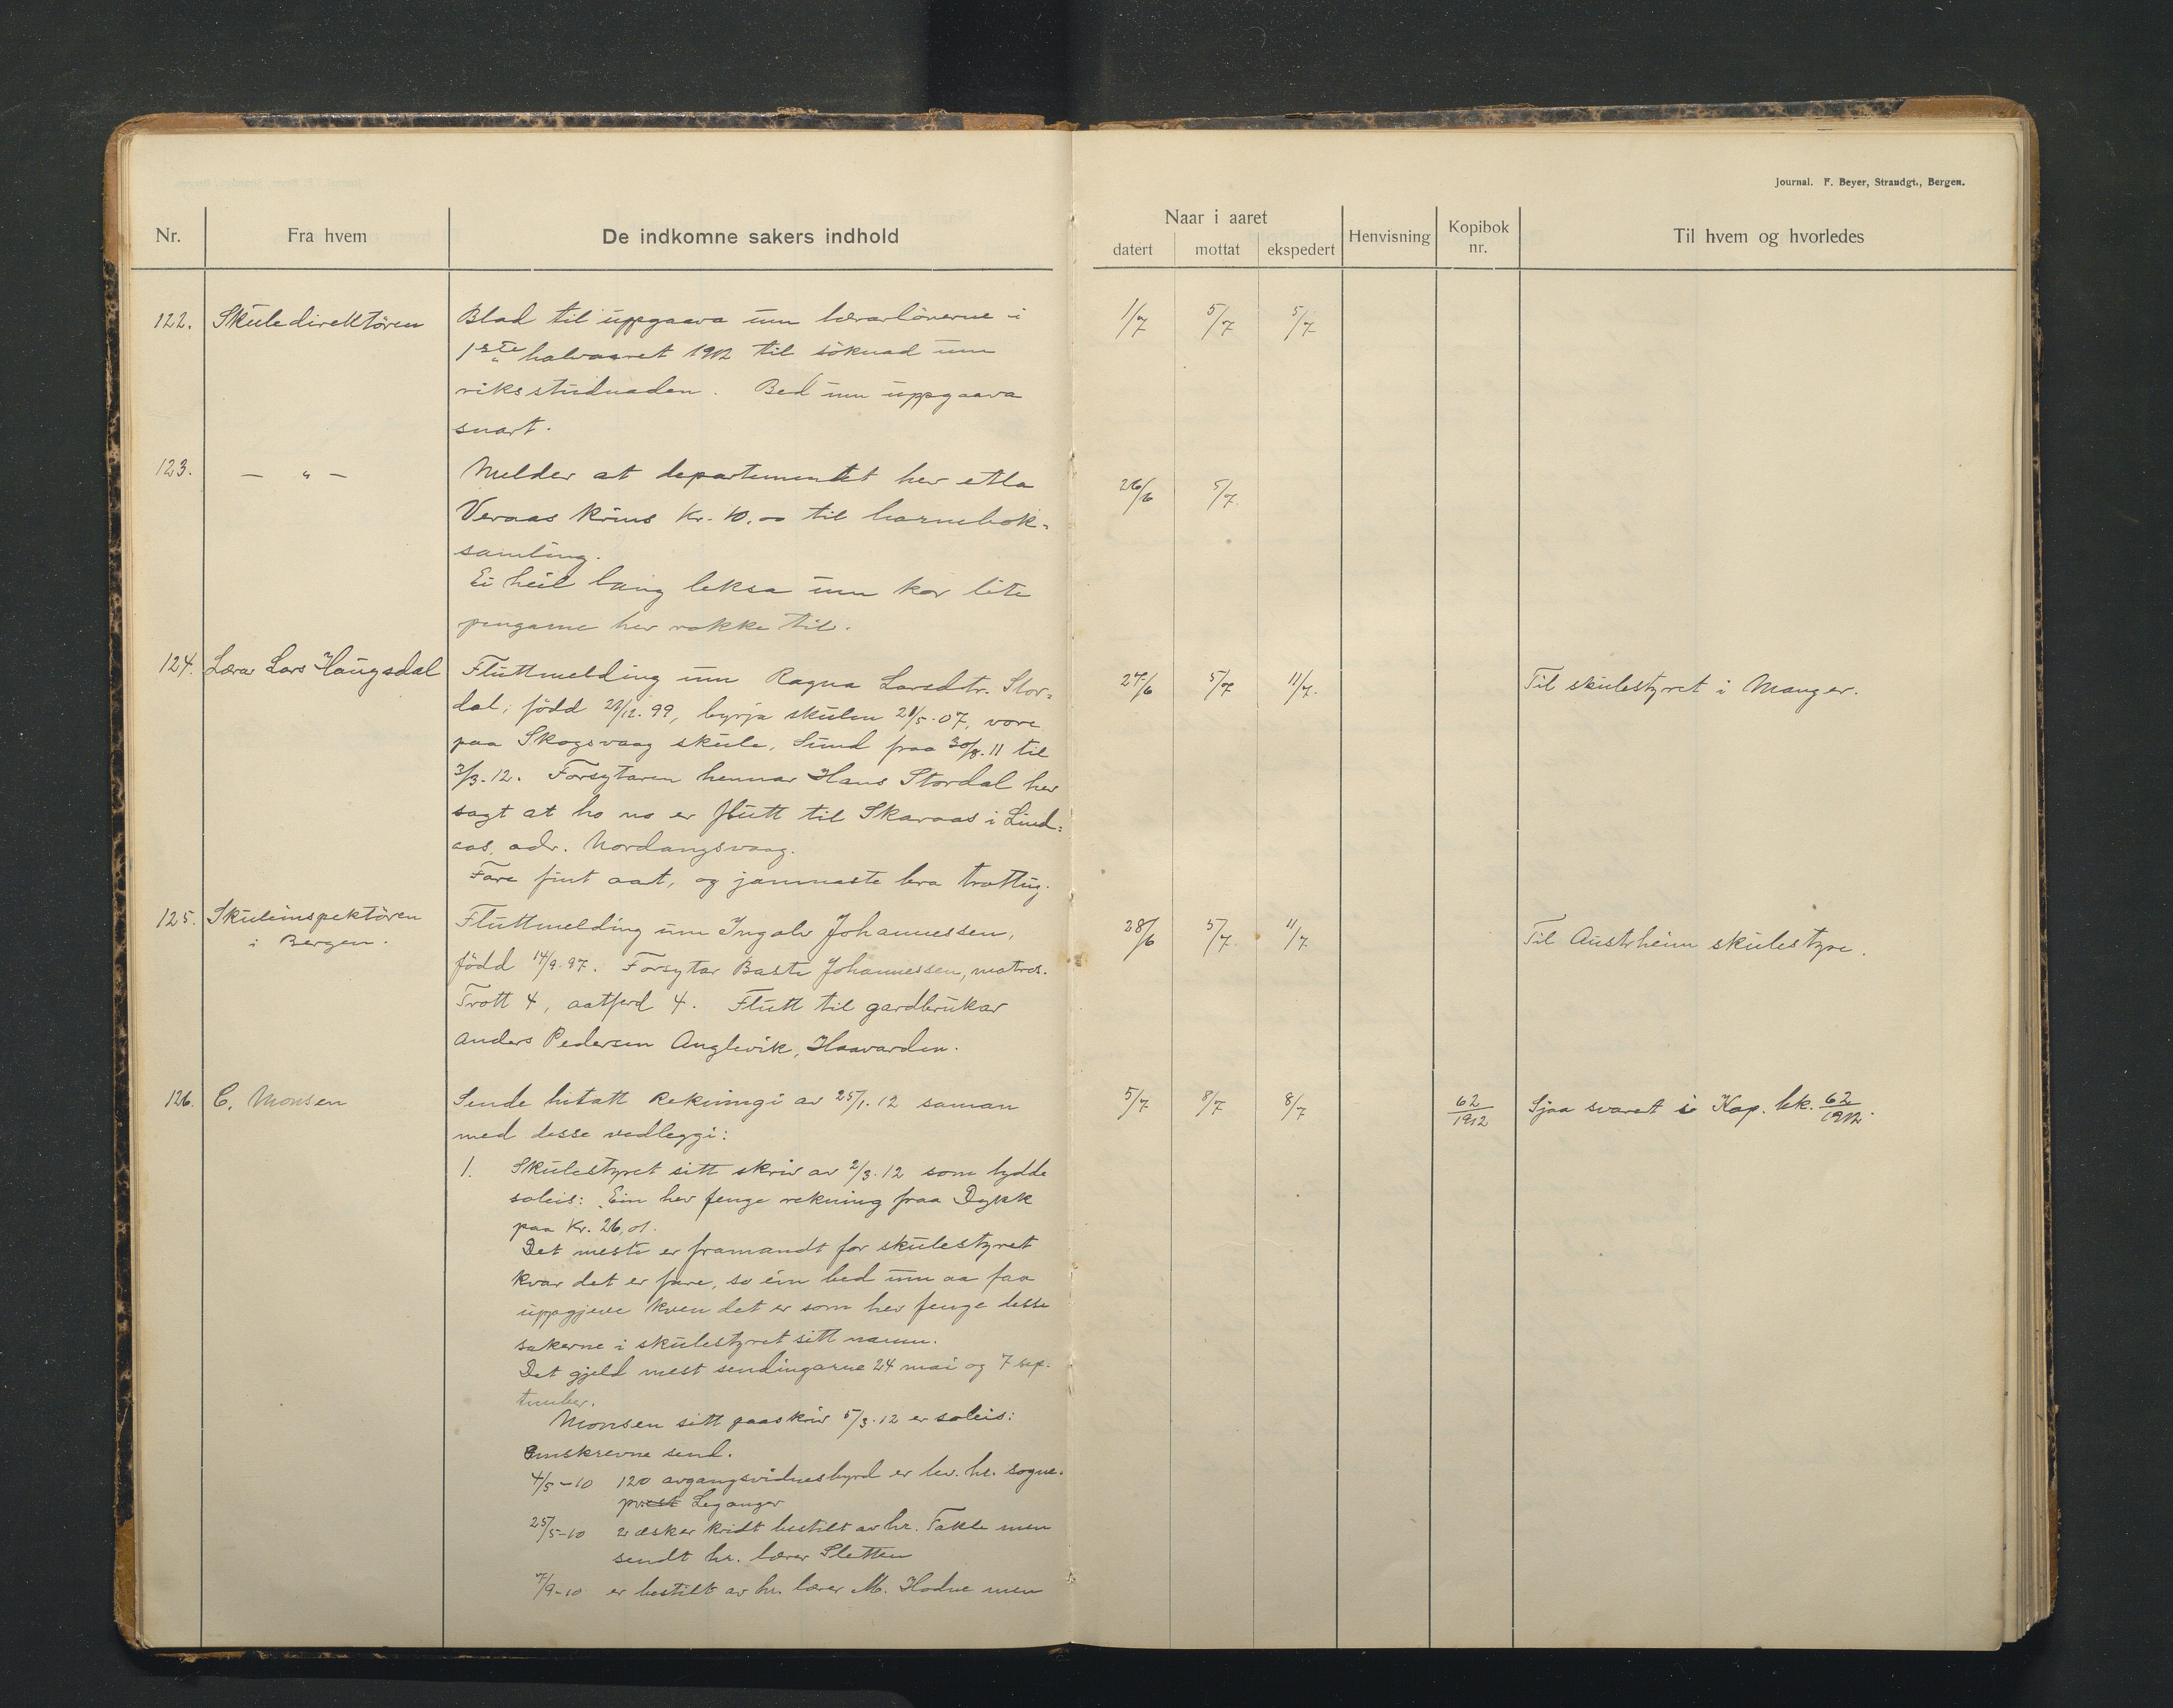 Journal. F. Beyer, Strandgt., Bergen.
Nr. Fra hvem De indkomne sakers indhold
Naar i aaret
datert mottat ekspedert Henvisning Kopibok nr. Til hvem og hvorledes
122. Skuledirektören Blad til uppgaava um lærarlönerne i 1/7 5/7 5/7
1ste halvaaret 1912 til söknad um
riksstudnaden. Bed um uppgaava
snart.
123. — " — Melder at departementet hev etla 26/6 5/7.
Veraas krins kr. 10.00 til barnebok-
samling.
Ei heil lang leksa um kor lite
pengarne hev rokke til.
124. Lærar Lars Haugsdal Fluttmelding um Ragna Larsdtr. Stor- 27/6 5/7 11/7. Til skulestyret i Manger.
dal, född 28/12. 99, byrja skulen 21/5. 07, vore
paa Skogsvaag skule, Sund fraa 30/8. 11 til
3/3. 12. Forsytaren hennar Hans Stordal hev
sagt at ho no er flutt til Skaraas i Lind-
aas, adr. Nordangsvaag.
Fare fint aat, og jamnaste bra trottug.
125. Skuleinspektören Fluttmelding um Ingolv Johannessen, 28/6 5/7. 11/7. Til Austrheim skulestyre.
i Bergen. född 14/9. 97. Forsytar Baste Johannessen, matros.
Trott 4, aatferd 4. Flutt til gardbrukar
Anders Pedersen Anglevik, Haavarden.
126. C. Monsen Sende hitatt Rekningi av 25/1. 12 saman 5/7 8/7 8/7 62/1912 Sjaa svaret i Kop. bk. 62/1912.
med desse vedleggi:
1. Skulestyret sitt skriv av 2/3. 12 som lydde
soleis: Ein hev fenge rekning fraa Dykk
paa Kr. 26,01.
Det meste er framandt for skulestyret
kvar det er fare, so ein bed um aa faa
uppgjeve kven det er som hev fenge desse
sakerne i skulestyret sitt namn.
Det gjeld mest sendingarne 24 mai og 7 sep-
tember.
Monsen sitt paaskriv 5/3. 12 er soleis:
Omskrevne send.
4/5-10 120 avgangsvidnesbyrd er lev. hr. sogne-
prest Leganger
25/5-10 2 æsker kridt bestilt av hr. Takle men
sendt hr. lærer Sletten
7/9-10 er bestilt av hr. lærer M. Hodne men